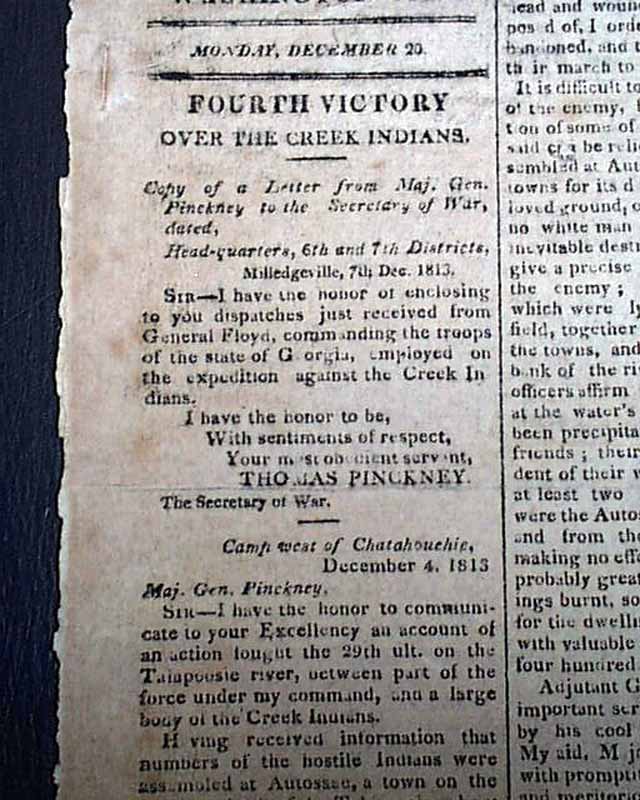 MONDAY, DECEMBER 20.
FOURTH VICTORY
OVER THE CREEK INDIANS.
Copy of a Letter from Maj. Gen.
Pinckney to the Secretary of War,
dated,
Head-quarters, 6th and 7th Districts,
Milledgeville, 7th Dec. 1813.
SIR—I have the honor of enclosing
to you dispatches just received from
General Floyd, commanding the troops
of the state of Georgia, employed on
the expedition against the Creek In
dians.
I have the honor to be,
With sentiments of respect,
Your most obedient servant,
THOMAS PINCKNEY.
The Secretary of War.
Camp west of Chatahouchie,
December 4, 1813
Maj. Gen. Pinckney,
SIR—I have the honor to communi-
cate to your Excellency an account of
an action fought the 29th ult. on the
Talapoosie river, between part of the
force under my command, and a large
body of the Creek Indians.
Having received information that
numbers of the hostile Indians were
assembled at Autossee, a town on the
lead and
posed of, I
and
their march to
It is difficult to
of the enemy,
tion of some of
said can be
sembled at
towns for its
loved ground,
no white man
inevitable
give a precise
the enemy;
which were
field, together
the towns, and
bank of the
officers affirm
at the water's
been
friends; their
dent of their
at least two
were the
and from the
making no
probably
ings burnt,
for the
with valuable
four hundred
Adjutant
important
by his cool
My aid,
with
and